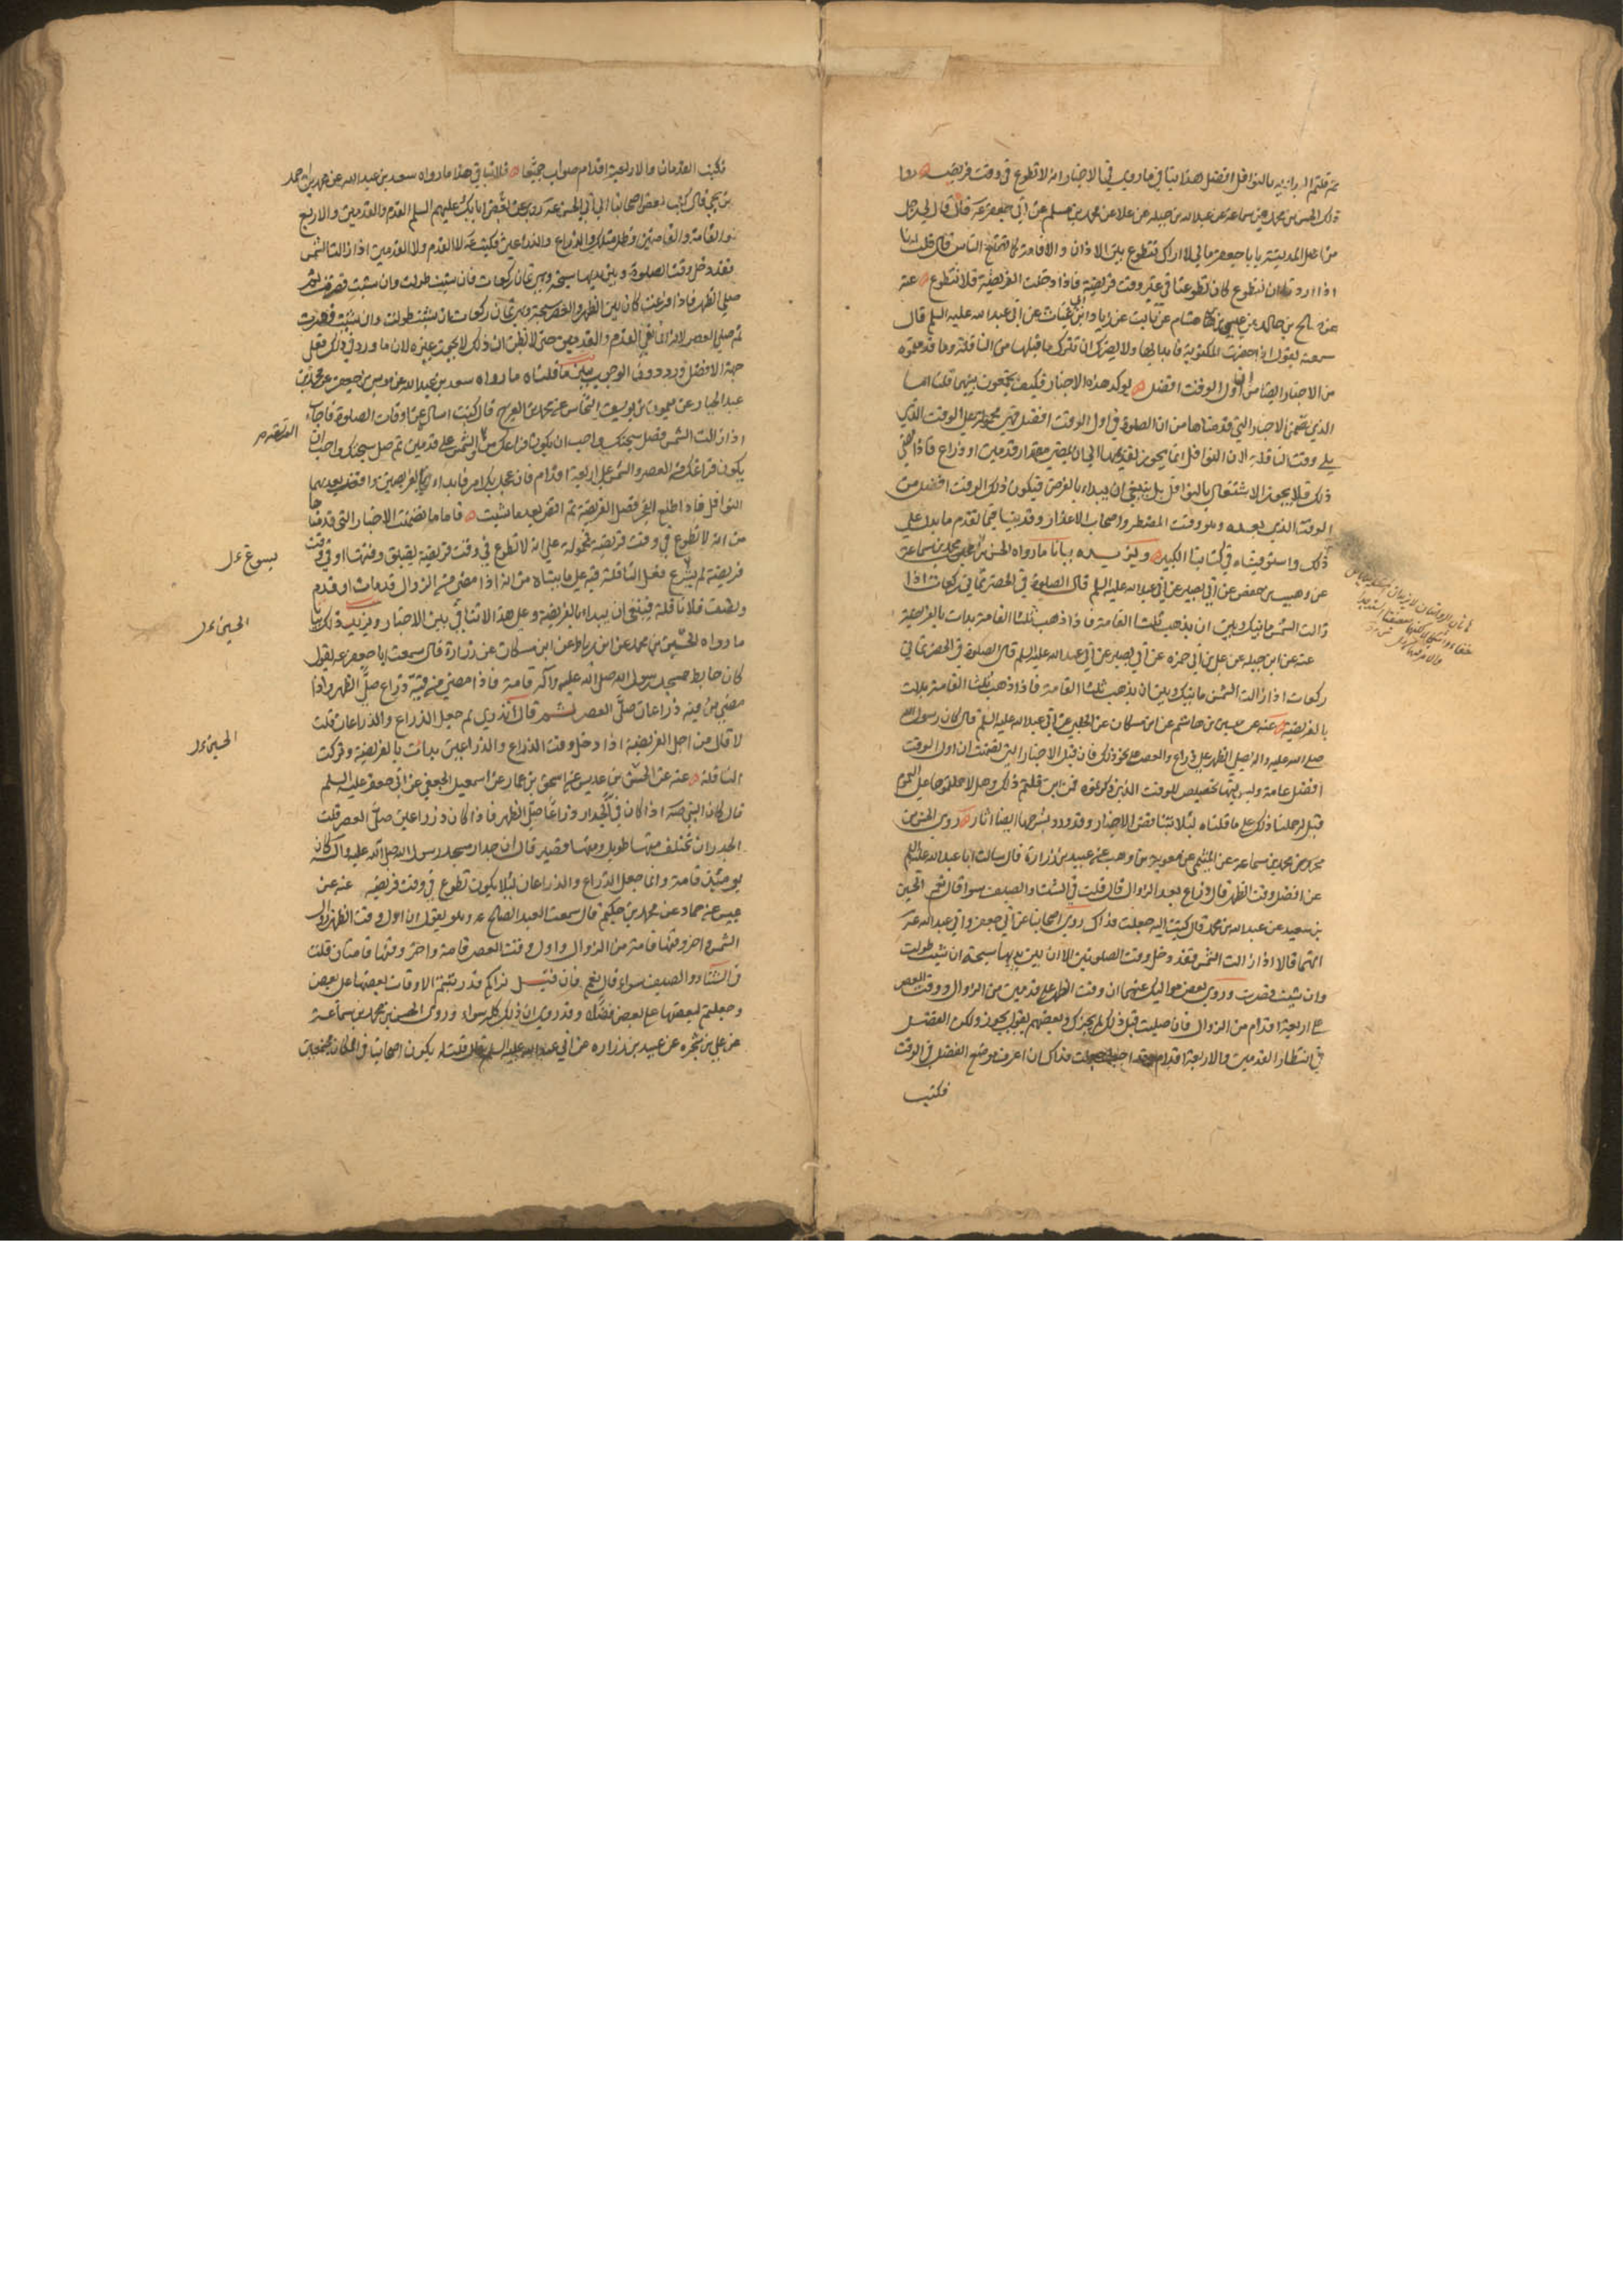 ثم قلتم البداية بالنوافل افضل هذا ينافي ما روى في الاخبار انه لا تطوع في وقت فريضة روى
ذلك الحسن بن محمد بن سماعة عن عبد الله بن جبله عن علا عن محمد بن مسلم عن ابي جعفر عه قال قال لي رجل
من اهل المدينة يا با جعفر مالي لا اراك تتطوع بين الاذان والاقامة كما يصنع الناس قال قلت انا
اذا اردنا ان نتطوع كان تطوعنا في غير وقت فريضة فاذا دخلت الفريضة فلا تطوع عنه
عن صالح بن خالد عن عبيس بن هشام عن ثابت عن زياد ابي غياث عن ابي عبد الله عليه السلم قال
سمعته يقول اذا حضرت المكتوبة فابدا بها ولا يضرك ان تترك ما قبلها من النافلة وما قدمتموه
من الاخبار ايضا من ان اول الوقت افضل يوكد هذه الاخبار فكيف تجمعون بينهما قلت اما
الذي تضمن الاخبار التي قدمناها من ان الصلوة في اول الوقت افضل فهي محمولة على الوقت الذي
يلي وقت النافلة لان النوافل انما يجوز تقديمها الى ان يمضي مقدار قدمين او ذراع فاذا مضى
ذلك فلا يجوز الاشتغال بالنوافل بل ينبغي ان يبداء بالفرض فيكون ذلك الوقت افضل من
الوقت الذي بعده وهو وقت المضطر واصحاب الاعذار وقد بينا فيما تقدم ما يدل على
ذلك واستوفيناه في كتابنا الكبير ويزيده بيانا ما رواه الحسن بن محمد بن سماعة
عن وهيب بن حفص عن ابي بصير عن ابي عبد الله عليه السلم قال الصلوة في الحضر ثماني ركعات اذا
زالت الشمس ما بينك وبين ان يذهب ثلثا القامة فاذا ذهب ثلثا القامة بدات بالفريضة
عنه عن ابن جبله عن علي بن ابي حمزه عن ابي بصير عن ابي عبد الله عليه السلم قال الصلوة في الحضر ثماني
ركعات اذا زالت الشمس ما بينك وبين ان يذهب ثلثا القامة فاذا ذهب ثلثا القامة بدات
بالفريضة عنه عن حسين بن هاشم عن ابن مسكان عن الحلبي عن ابي عبد الله عليه السلم قال كان رسول الله
صلى الله عليه واله يصلي الظهر على ذراع والعصر على نحو ذلك فان قيل الاخبار التي تضمنت ان اول الوقت
افضل عامة وليس فيها تخصيص للوقت الذي ذكرتموه فمن اين قلتم ذلك وهلا حملتموها على العموم
قيل له حملنا ذلك على ما قلناه لئلا تتناقض الاخبار وقد ورد بشرحها ايضا اثار روى الحسن بن
محمد بن سماعة عن الميثمي عن معوية بن وهب عن عبيد بن زرارة قال سالت ابا عبد الله عليه السلم
عن افضل وقت الظهر قال ذراع بعد الزوال قال قلت في الشتاء والصيف سوا قال نعم الحسين
بن سعيد عن عبد الله بن محمد قال كتبت اليه جعلت فداك روى اصحابنا عن ابي جعفر وابي عبد الله عه
انهما قالا اذا زالت الشمس فقد دخل وقت الصلوتين الا ان بين يديها سبحة ان شئت طولت
وان شئت قصرت وروى بعض مواليك عنهما ان وقت الظهر على قدمين من الزوال ووقت العصر
على اربعة اقدام من الزوال فان صليت قبل ذلك لم يجزك وبعضهم يقول يجوز ولكن الفضل
في انتظار القدمين والاربعة اقدام وقد احببت جعلت فداك ان اعرف موضع الفضل في الوقت
فكتب
فكتب القدمان والاربعة اقدام صواب جميعا فلا ينافي هذا ما رواه سعد بن عبد الله عن محمد بن احمد
بن يحيى قال كتب بعض اصحابنا الى ابي الحسن عه روى عن ابايك عليهم السلم القدم والقدمين والاربع
والقامة والقامتين وظل مثلك والذراع والذراعين فكتب عه لا القدم ولا القدمين اذا زالت الشمس
فقد دخل وقت الصلوة وبين يديها سبحة وهي ثمان ركعات فان شئت طولت وان شئت قصرت ثم
صل الظهر فاذا فرغت كان بين الظهر والعصر سبحة وهي ثمان ركعات ان شئت طولت وان شئت قصرت
ثم صل العصر لانه انما نفى القدم والقدمين حتى لا يظن ان ذلك لا يجوز غيره لان ما ورد في ذلك فعلى
جهة الافضل ورد دون الوجوب يبين ما قلناه ما رواه سعد بن عبد الله عن موسى بن جعفر عن محمد بن
عبد الجبار عن ميمون بن يوسف النخاس عن محمد بن الفرج قال كتبت اسال عن اوقات الصلوة فاجاب
اذا زالت الشمس فصل سبحتك واحب ان يكون فراغك من والشمس على قدمين ثم صل سبحتك واحب ان
يكون فراغك من العصر والشمس على اربعة اقدام فان عجل بك امر فابداء بالفريضتين واقض بعدهما
النوافل فاذا طلع الفجر فصل الفريضة ثم اقض بعد ما شئت فاما ما تضمنت الاخبار التي قدمناها
من انه لا تطوع في وقت فريضة محمولة على انه لا تطوع في وقت فريضة يضيق وقتها او في وقت
فريضة لم يشرع فعل النافلة فيه على ما بيناه من انه اذا مضى من الزوال قدمان او قدم
ونصف فلا نافلة فينبغي ان يبداء بالفريضة وعلى هذا لا تنافي بين الاخبار ويزيد ذلك بيانا
ما رواه الحسين بن محمد عن ابن رباط عن ابن مسكان عن زرارة قال سمعت ابا جعفر عه يقول
كان حايط مسجد رسول الله صلى الله عليه واله قامة فاذا مضى من فيئه ذراع صلى الظهر واذا
مضى من فيئه ذراعان صلى العصر ثم قال اتدري لم جعل الذراع والذراعان قلت
لا قال من اجل الفريضة اذا دخل وقت الذراع والذراعين بدات بالفريضة وتركت
النافلة عنه عن الحسن بن عديس عن اسحق بن عمار عن اسمعيل الجعفي عن ابي جعفر عليه السلم
قال كان النبي ص اذا كان في الجدار ذراعا صلى الظهر فاذا كان ذراعين صلى العصر قلت
الجدران تختلف منها طويل ومنها قصير قال ان جدار مسجد رسول الله صلى الله عليه واله كان
يومئذ قامة وانما جعل الذراع والذراعان لئلا يكون تطوع في وقت فريضة عنه عن
عبيس عن حماد عن محمد بن حكيم قال سمعت العبد الصالح عه وهو يقول ان اول وقت الظهر زوال
الشمس واخر وقتها قامة من الزوال واول وقت العصر قامة واخر وقتها قامتان قلت
في الشتاء والصيف سواء قال نعم فان قيل نراكم قد رتبتم الاوقات بعضها على بعض
وجعلتم لبعضها على بعض فضلا وقد روى ان ذلك كله سواء وروى الحسن بن محمد بن سماعة
عن علي بن شجره عن عبيد بن زراره عن ابي عبد الله عليه السلم قال قلت له يكون اصحابنا في المكان مجتمعين
يسوغ
الحسن
الحسن